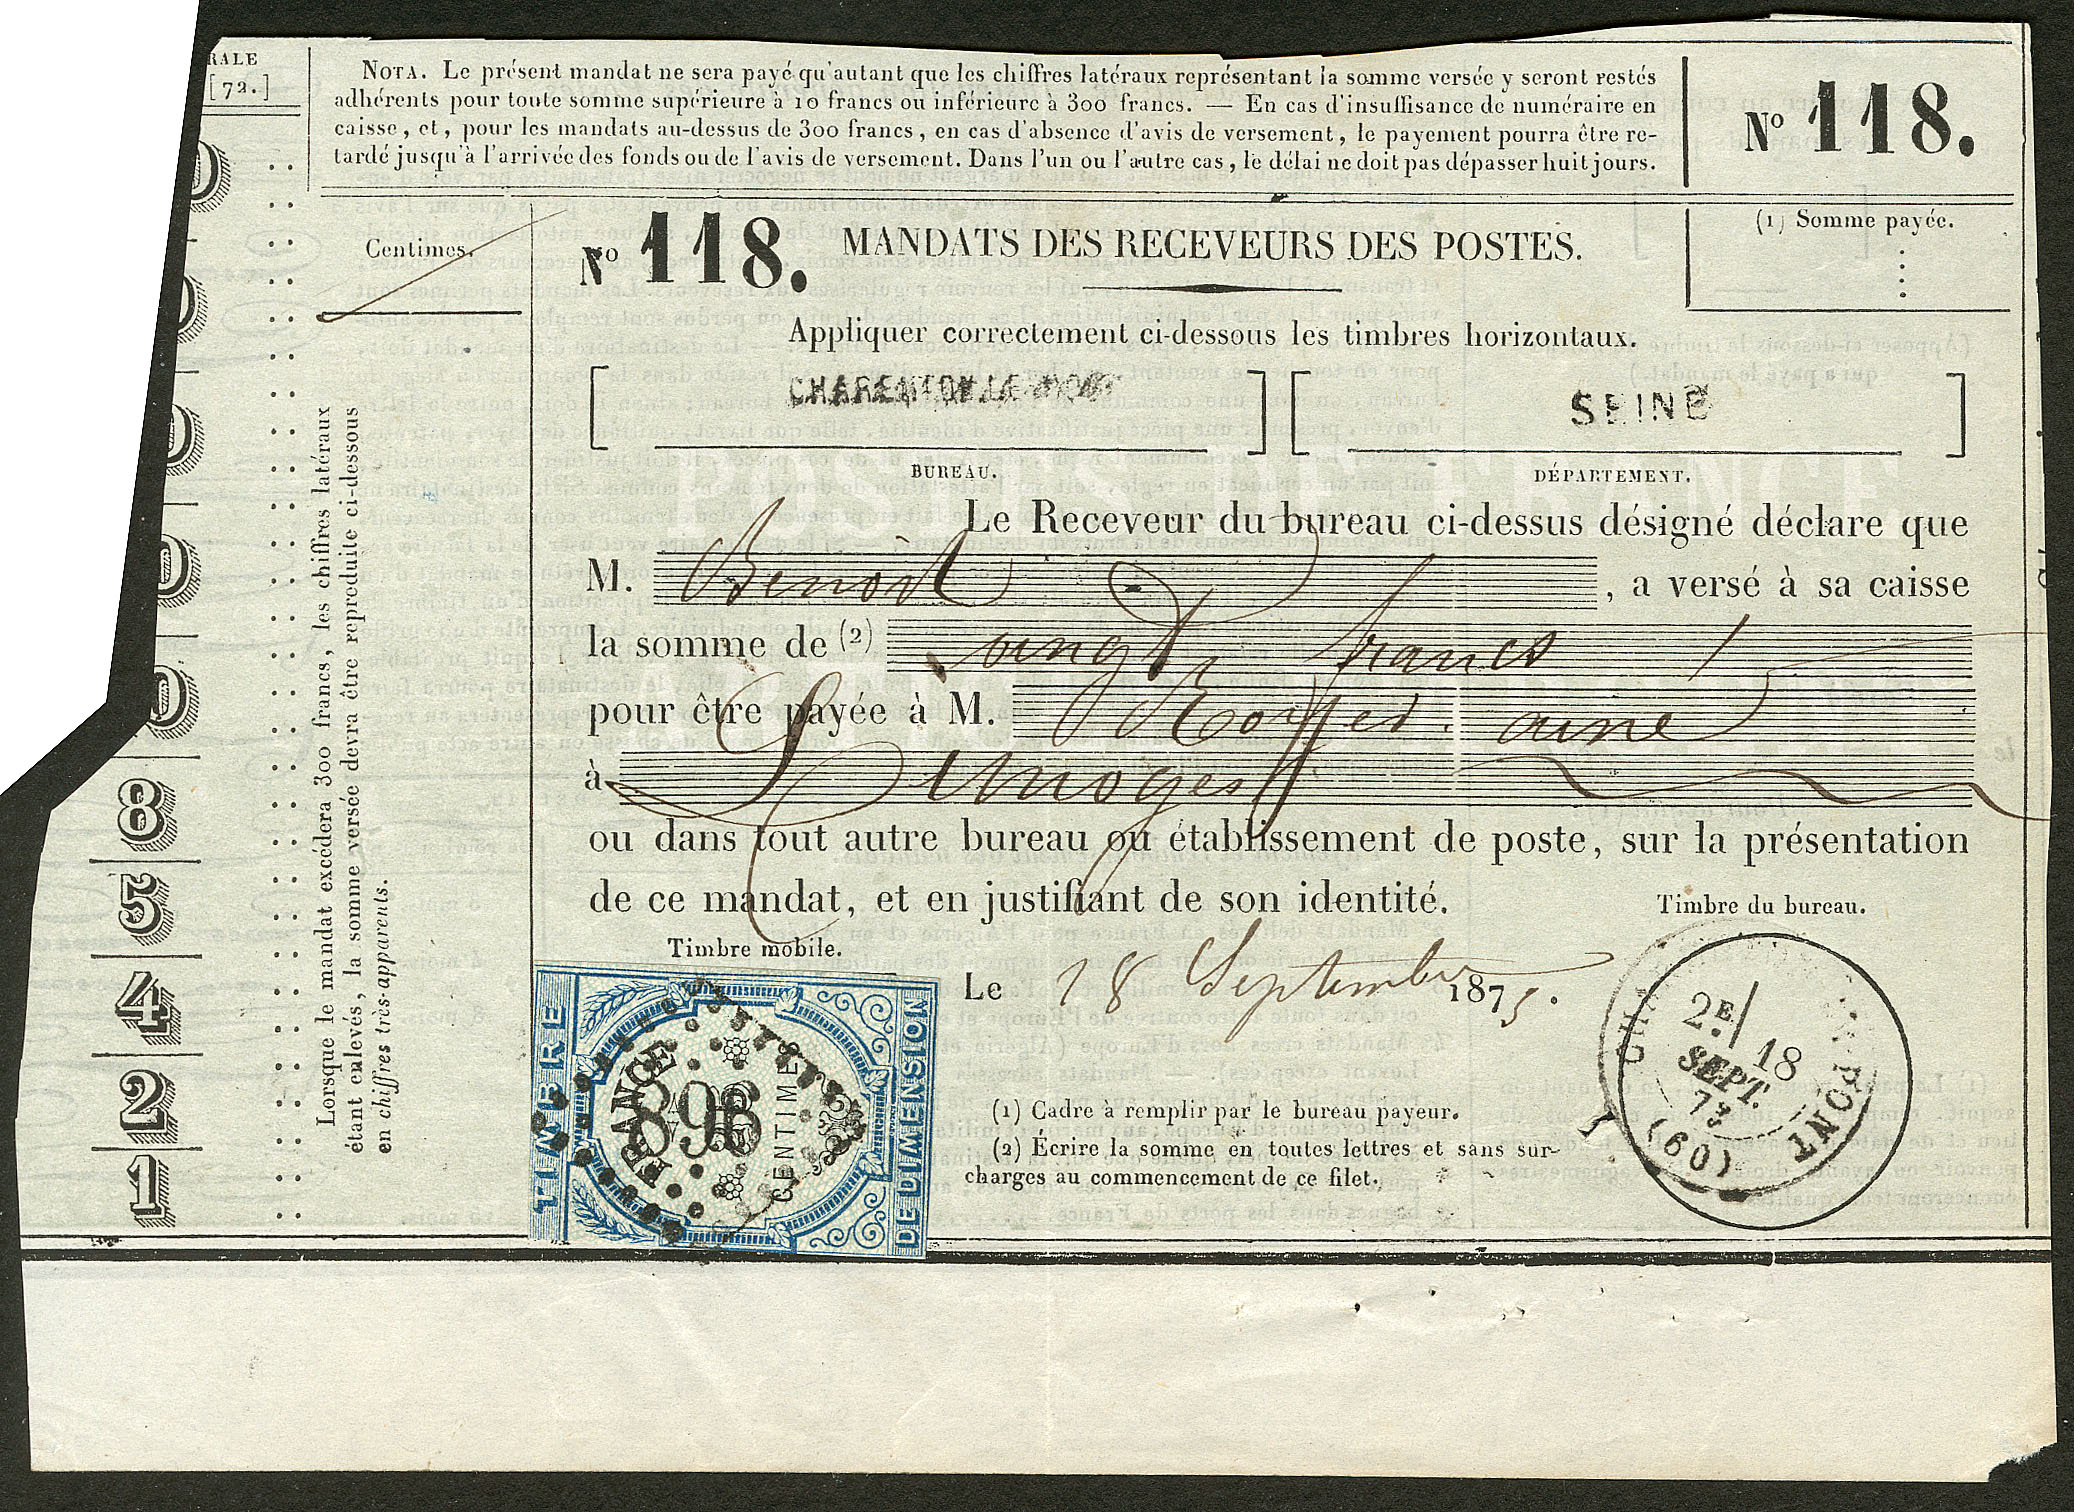 RALE
[72.]
NOTA. Le présent mandat ne sera payé qu'autant que les chiffres latéraux représentant la somme versée y seront restés
adhérents pour toute somme supérieure à 10 francs ou inférieure à 300 francs. — En cas d'insuffisance de numéraire en
caisse, et, pour les mandats au-dessus de 300 francs, en cas d'absence d'avis de versement, le payement pourra être re-
tardé jusqu'à l'arrivée des fonds ou de l'avis de versement. Dans l'un ou l'autre cas, le délai ne doit pas dépasser huit jours.
N° 118.
(1) Somme payée.
Centimes.
N° 118. MANDATS DES RECEVEURS DES POSTES.
Appliquer correctement ci-dessous les timbres horizontaux.
[ CHARENTON LE PONT ] [ SEINE ]
BUREAU. DÉPARTEMENT.
Le Receveur du bureau ci-dessus désigné déclare que
M. Benoit, a versé à sa caisse
la somme de (2) vingt francs
pour être payée à M. ainé
à Limoges
ou dans tout autre bureau ou établissement de poste, sur la présentation
de ce mandat, et en justifiant de son identité.
Timbre mobile.
Timbre du bureau.
Le 18 Septembre 1873.
(1) Cadre à remplir par le bureau payeur.
(2) Écrire la somme en toutes lettres et sans sur-
charges au commencement de ce filet.
Lorsque le mandat excédera 300 francs, les chiffres latéraux
étant enlevés, la somme versée devra être reproduite ci-dessous
en chiffres très-apparents.
0
0
0
0
0
8
5
4
2
1
TIMBRE
DE DIMENSION
FRANCE
CENTIMES
896
CHA PONT
2E/
18
SEPT.
73
(60)